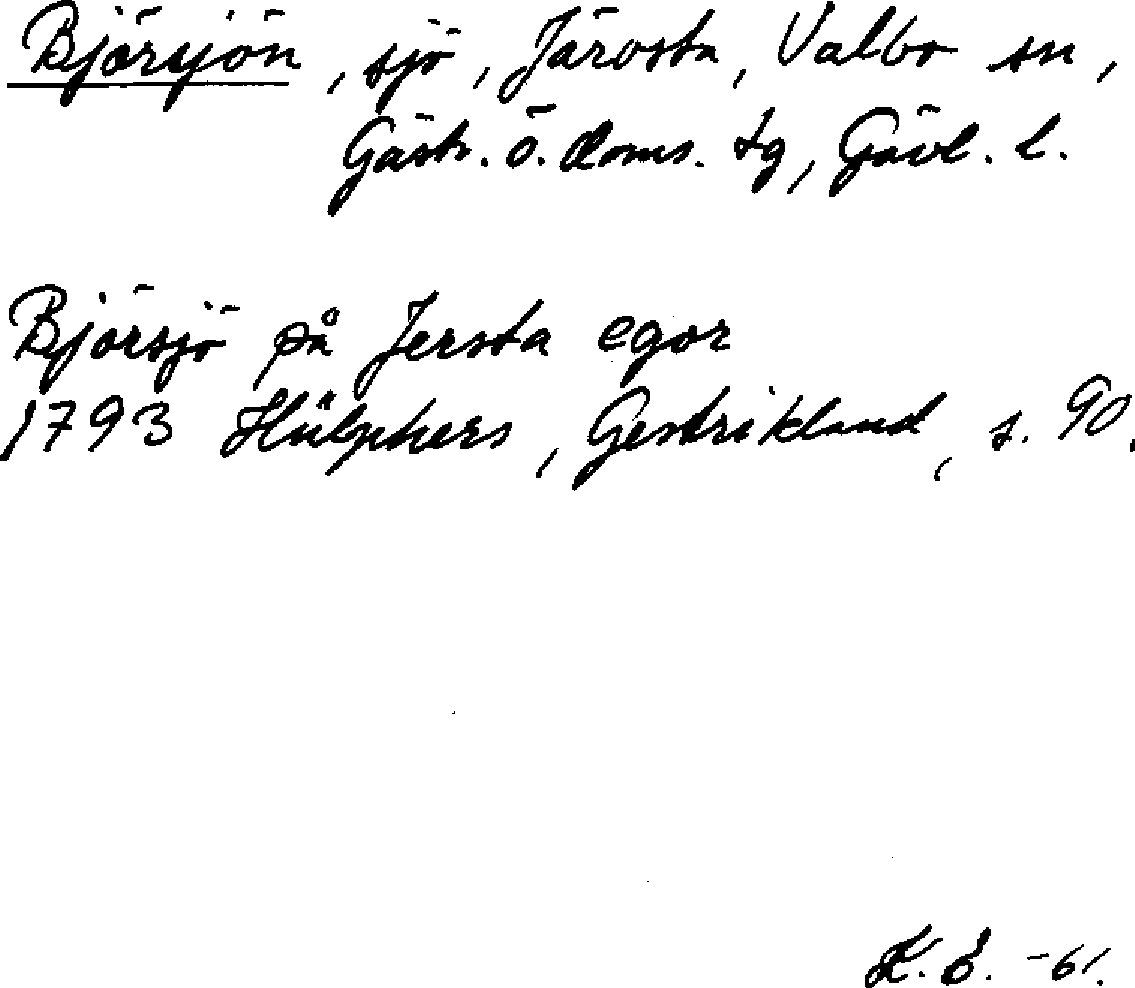 Björsjön, sjö, Järvsta, Valbo sn,
Gästr. ö. doms. tg, Gävl. l.
Björsjö på Jersta egor
1793 Hülphers, Gestrikland, s. 90.
-61.